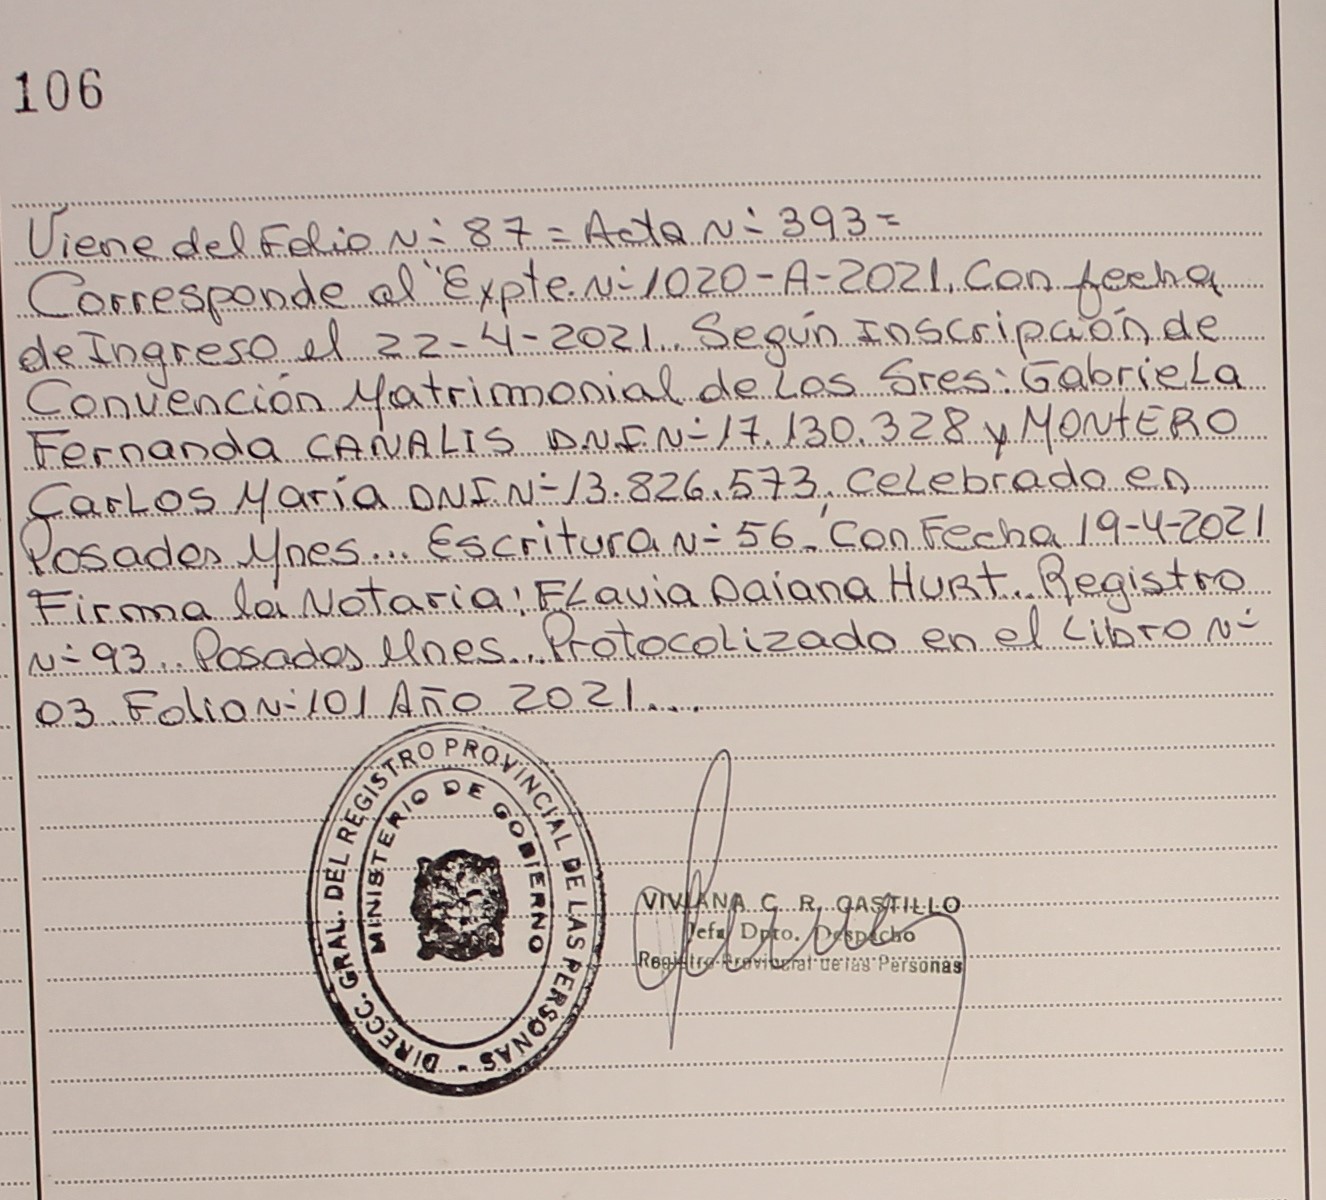 106
Viene del Folio N- 87 = Acta N- 393 =
Corresponde al Expte. N- 1020-A-2021. Con fecha
de Ingreso el 22-4-2021.. Según Inscripción de
Convención Matrimonial de Los Sres: GabrieLa
Fernanda CANALIS DNI N- 17.130.328 y MONTERO
CarLos María DNI. N- 13.826.573. CeLebrado en
Posadas Mnes... Escritura N- 56. Con Fecha 19-4-2021
Firma la Notaria: FLavia Daiana HURT.. Registro
N- 93... Posadas Mnes... Protocolizado en el Libro N-
03. Folio N- 101 Año 2021....
DIRECC. GRAL. DEL REGISTRO PROVINCIAL DE LAS PERSONAS -
MINISTERIO DE GOBIERNO
VIVIANA C. R. CASTILLO
Jefa Dpto. Despacho
Registro Provincial de las Personas